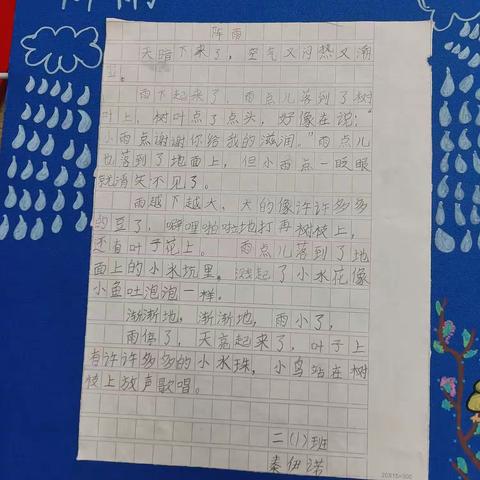 阵雨
天暗下来了，空气又闷热又潮
湿。
雨下起来了，雨点儿落到了树
叶上，树叶点了点头，好像在说：“
小雨点谢谢你给我的滋润。”雨点儿
也落到了地面上，但小雨点一眨眼
就消失不见了。
雨越下越大，大的像许许多多
的豆了，噼哩啪啦地打再树枝上，
还有叶子花上。 雨点儿落到了地
面上的小水坑里。溅起了小水花像
小鱼吐泡泡一样。
渐渐地，渐渐地，雨小了，
雨停了，天亮起来了，叶子上
有许许多多的小水珠，小鸟站在树
枝上放声歌唱。
二（1）班
秦伊诺
20X15=300